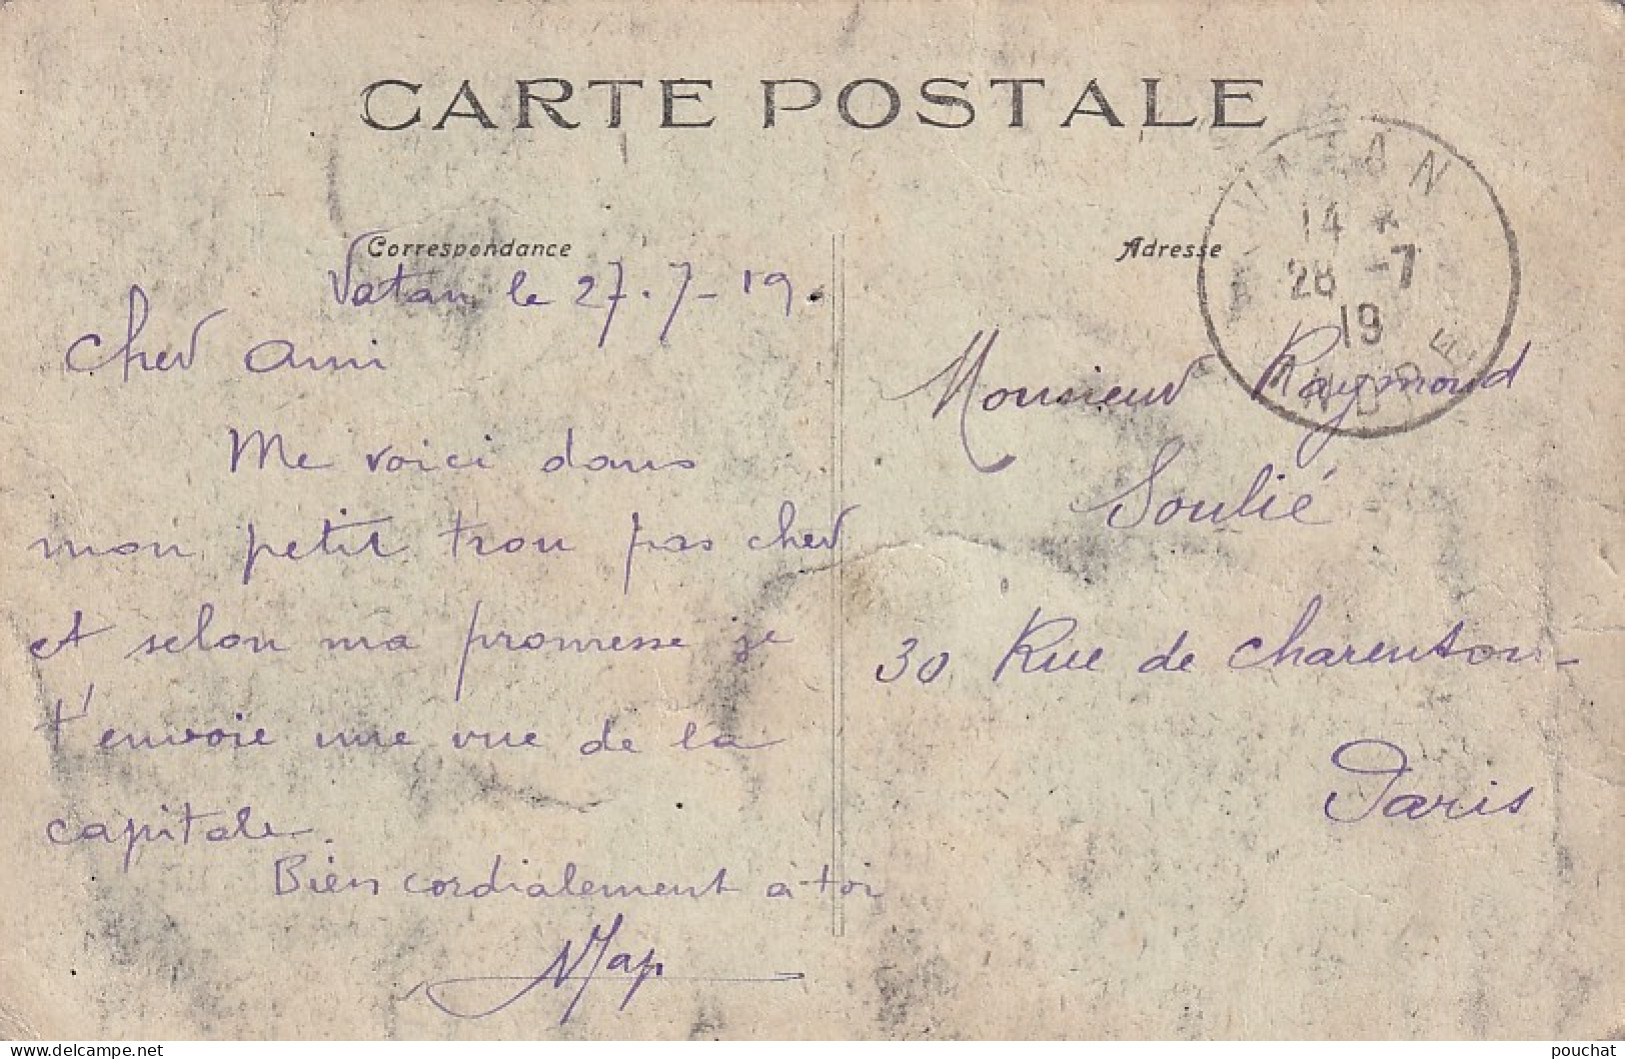 CARTE POSTALE
Correspondance
Vatan le 27.7-19.
Cher Ami
Me voici dans
mon petit trou pas cher
et selon ma promesse je
t'envoie une vue de la
capitale.
Bien cordialement à toi
Adresse
VATAN
14 *
28 -7
19
INDRE
Monsieur Raymond
Soulié
30 Rue de Charenton
Paris
www.delcampe.net
pouchat